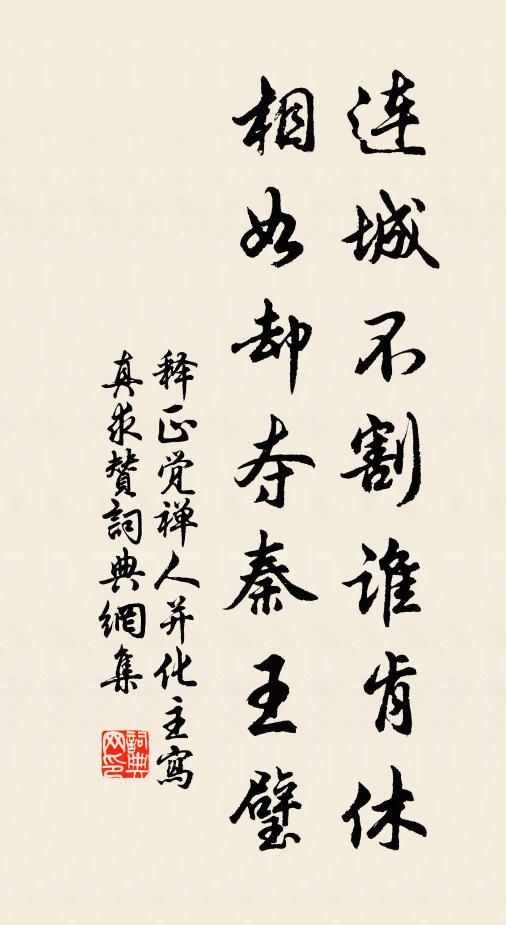 连城不割谁肯休
相如却夺秦王璧
释正觉禅人并化主写
真求赞詞典網集
詞典
网印